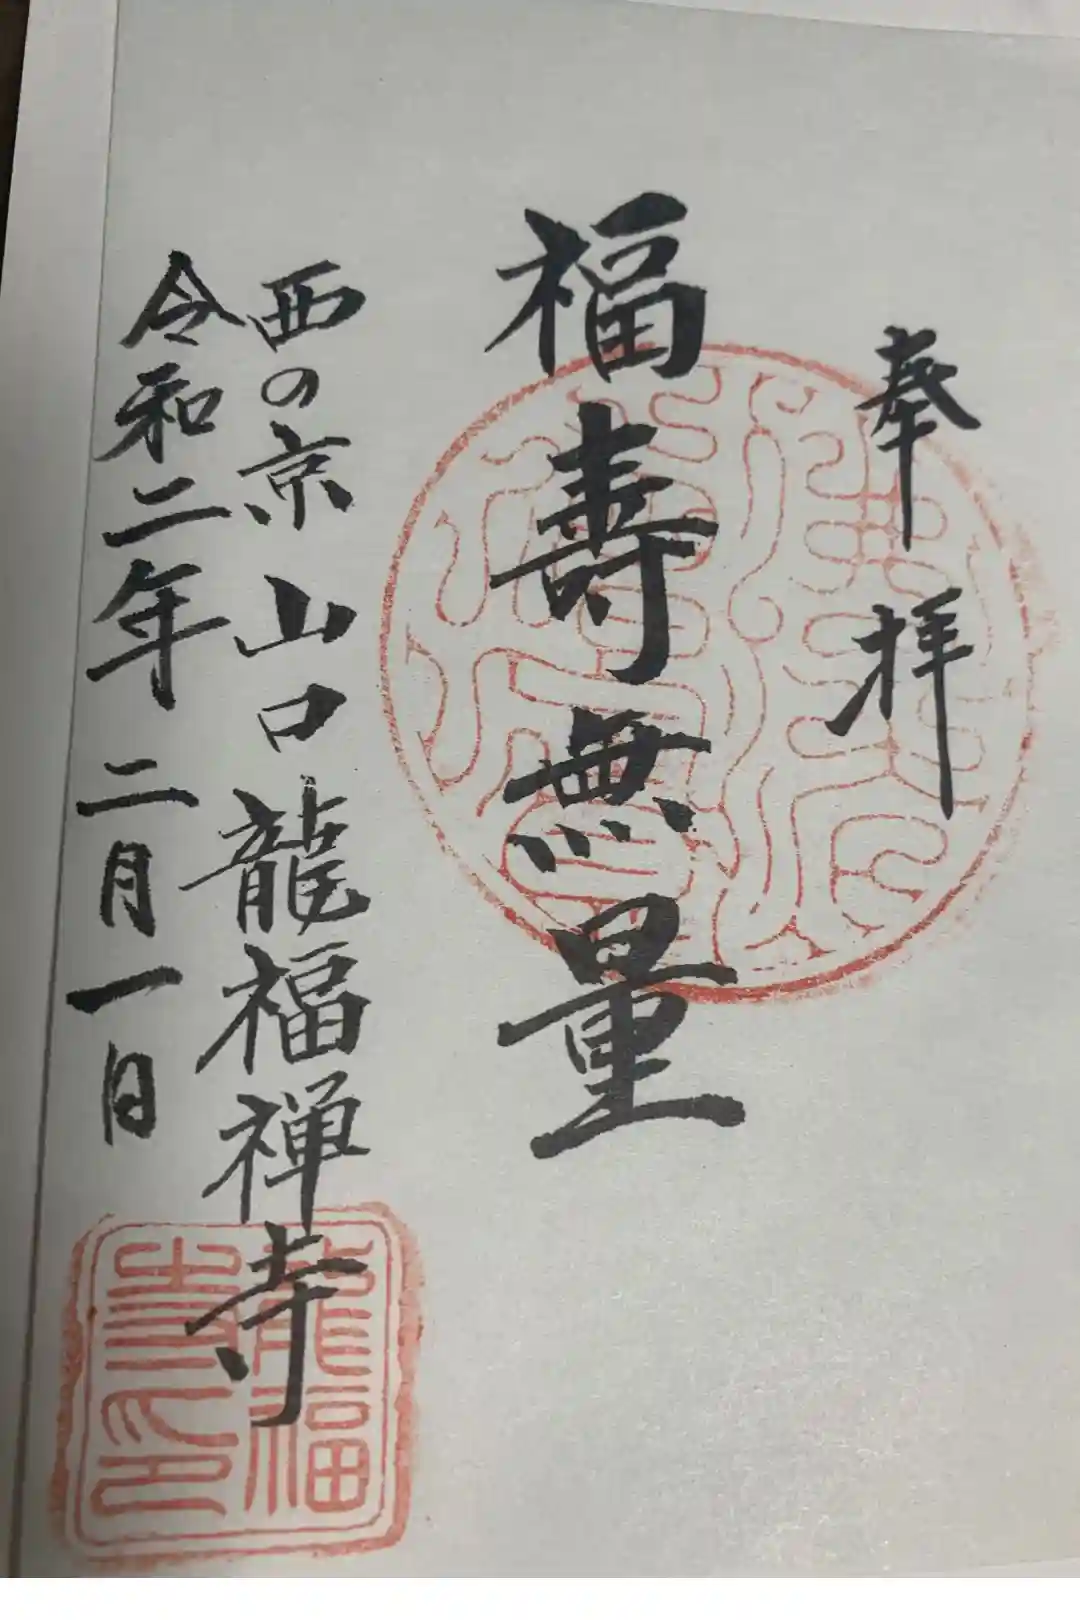 奉拝
福壽無量
西の京山口龍福禅寺
令和二年二月一日
龍福
寺印